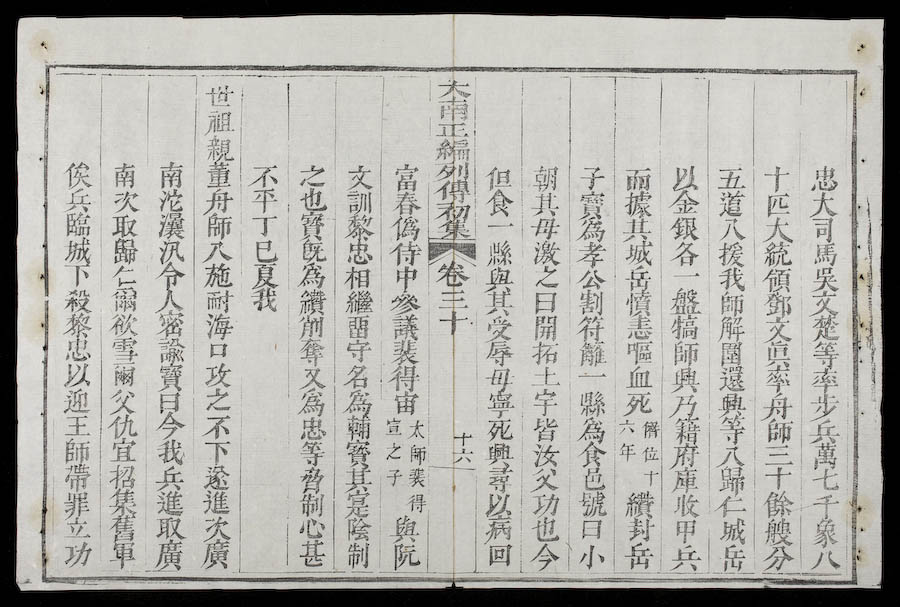 忠大司馬吳文楚等率步兵萬七千象八
十匹大統領鄧文眞率舟師三十餘艘分
五道入援我師解圍還興等入歸仁城岳
以金銀各一盤犒師興乃籍府庫收甲兵
而據其城岳憤恚嘔血死僭位十六年纘封岳
子寶爲孝公割符籬一縣爲食邑號曰小
朝其母激之曰開拓土宇皆汝父功也今
但食一縣與其受辱毋寧死興尋以病回
大南正編列傳初集 卷三十 十六
富春僞侍中參議裴得宙太師裴得宣之子與阮
文訓黎忠相繼畱守名爲輔寶其寔陰制
之也寶旣爲纘削奪又爲忠等脅制心甚
不平丁巳夏我
世祖親董舟師入施耐海口攻之不下遂進次廣
南沱㶞汛令人密諭寶曰今我兵進取廣
南次取歸仁爾欲雪爾父仇宜招集舊軍
俟兵臨城下殺黎忠以迎王師帶罪立功